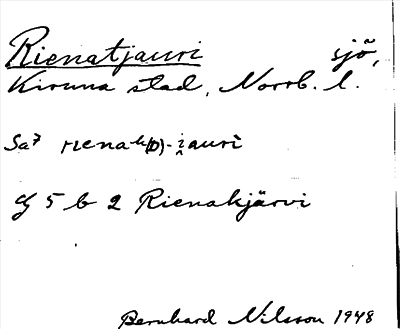 Rienatjauri sjö,
Kiruna stad, Norrb. l.
Sa7 rienak(D)-i̯auri
Cf 5 b 2 Rienakjärvi
Bernhard Nilsson 1948